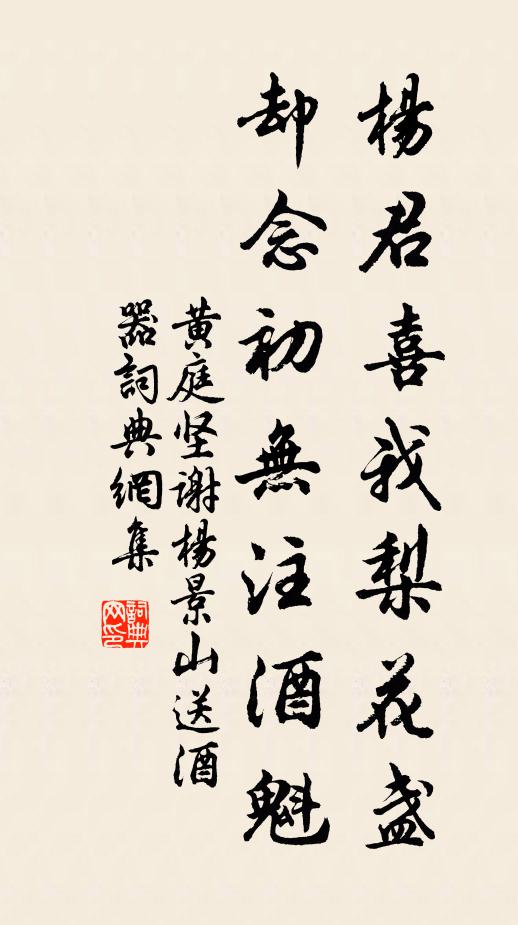 楊君喜我梨花盞
却念初無注酒魁
黃庭坚謝楊景山送酒
器詞典網集
詞典
网印